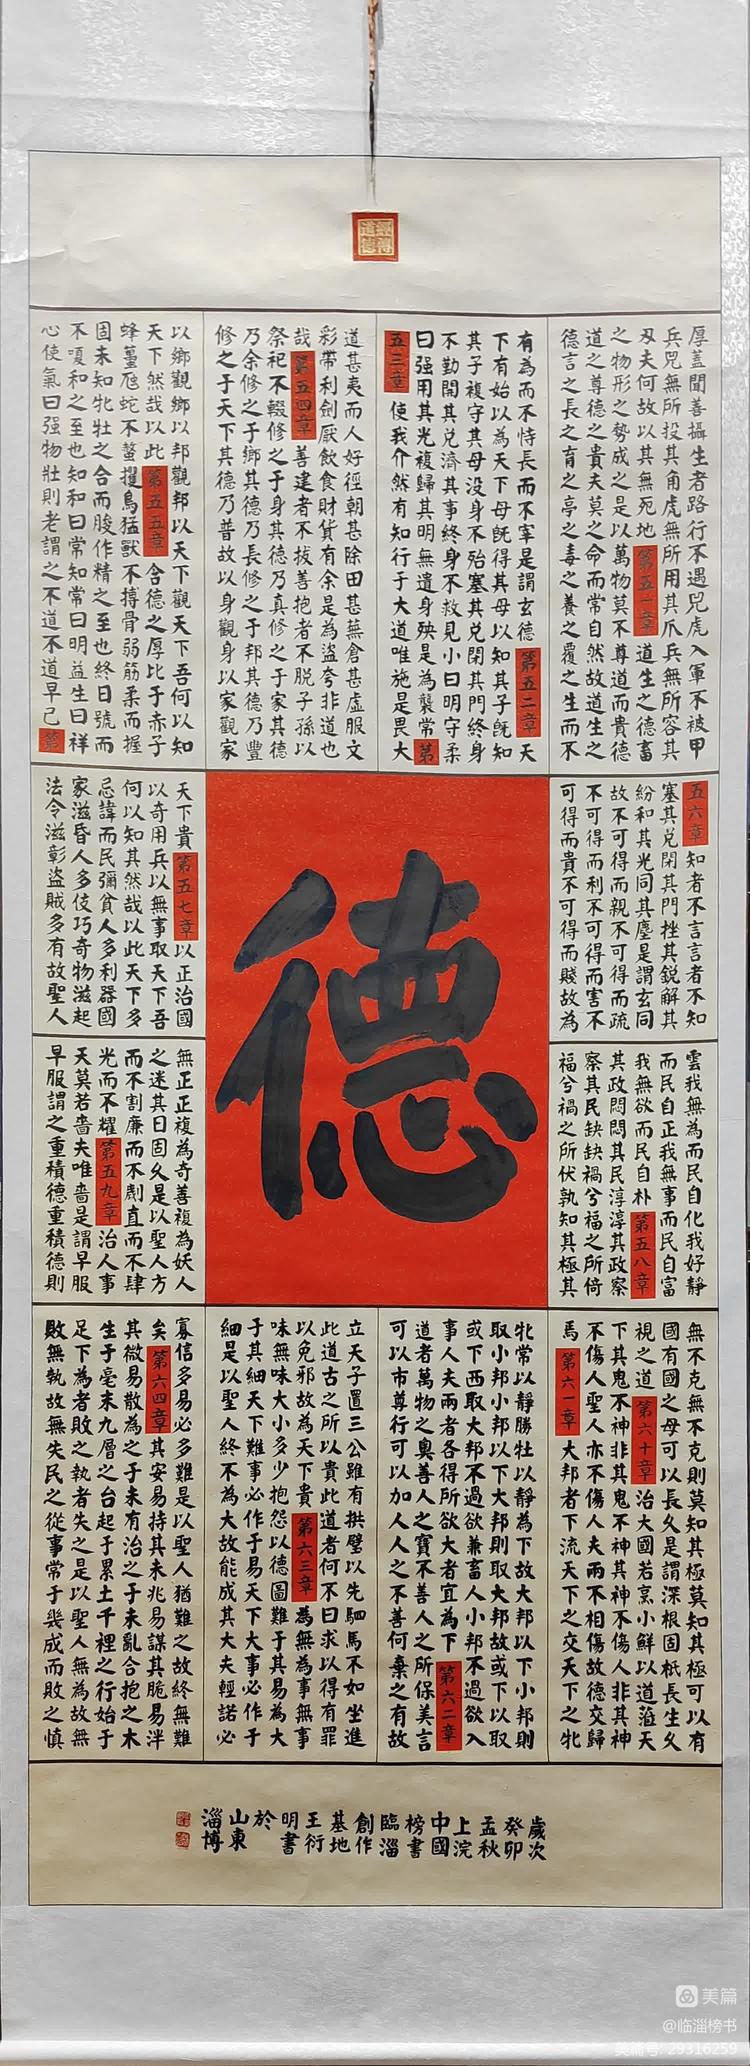 厚蓋聞善攝生者路行不遇兕虎入軍不被甲
兵兕無所投其角虎無所用其爪兵無所容其
刃夫何故以其無死地第五一章道生之德畜
之物形之勢成之是以萬物莫不尊道而貴德
道之尊德之貴夫莫之命而常自然故道生之
德言之長之育之亭之毒之養之覆之生而不
有為而不恃長而不宰是謂玄德第五二章天
下有始以為天下母既得其母以知其子既知
其子複守其母没身不殆塞其兑閉其門終身
不勤開其兑濟其事終身不救見小曰明守柔
曰强用其光複歸其明無遺身殃是為襲常第
五三章使我介然有知行于大道唯施是畏大
道甚夷而人好徑朝甚除田甚蕪倉甚虚服文
彩帶利劍厭飲食財貨有余是為盗夸非道也
哉第五四章善建者不拔善抱者不脱子孫以
祭祀不輟修之于身其德乃真修之于家其德
乃余修之于鄉其德乃長修之于邦其德乃豐
修之于天下其德乃普故以身觀身以家觀家
以鄉觀鄉以邦觀邦以天下觀天下吾何以知
天下然哉以此第五五章含德之厚比于赤子
蜂蠆虺蛇不螫攫鳥猛獸不搏骨弱筋柔而握
固未知牝牡之合而朘作精之至也終日號而
不嗄和之至也知和曰常知常曰明益生曰祥
心使氣曰强物壯則老謂之不道不道早已第
五六章知者不言言者不知
塞其兑閉其門挫其鋭解其
紛和其光同其塵是謂玄同
故不可得而親不可得而疏
不可得而利不可得而害不
可得而貴不可得而賤故為
德
天下貴第五七章以正治國
以奇用兵以無事取天下吾
何以知其然哉以此天下多
忌諱而民彌貧人多利器國
家滋昏人多伎巧奇物滋起
法令滋彰盗賊多有故聖人
雲我無為而民自化我好靜
而民自正我無事而民自富
我無欲而民自朴第五八章
其政悶悶其民淳淳其政察
察其民缺缺禍兮福之所倚
福兮禍之所伏孰知其極其
無正正複為奇善複為妖人
之迷其日固久是以聖人方
而不割廉而不劌直而不肆
光而不耀第五九章治人事
天莫若嗇夫唯嗇是謂早服
早服謂之重積德重積德則
無不克無不克則莫知其極莫知其極可以有
國有國之母可以長久是謂深根固柢長生久
視之道第六十章治大國若烹小鮮以道蒞天
下其鬼不神非其鬼不神其神不傷人非其神
不傷人聖人亦不傷人夫兩不相傷故德交歸
焉第六一章大邦者下流天下之交天下之牝
牝常以靜勝牡以靜為下故大邦以下小邦則
取小邦小邦以下大邦則取大邦故或下以取
或下西取大邦不過欲兼畜人小邦不過欲入
事人夫兩者各得所欲大者宜為下第六二章
道者萬物之奥善人之寶不善人之所保美言
可以市尊行可以加人人之不善何棄之有故
立天子置三公雖有拱璧以先駟馬不如坐進
此道古之所以貴此道者何不曰求以得有罪
以免邪故為天下貴第六三章為無為事無事
味無味大小多少抱怨以德圖難于其易為大
于其細天下難事必作于易天下大事必作于
細是以聖人終不為大故能成其大夫輕諾必
寡信多易必多難是以聖人猶難之故終無難
矣第六四章其安易持其未兆易謀其脆易泮
其微易散為之于未有治之于未亂合抱之木
生于毫末九層之台起于累土千裡之行始于
足下為者敗之執者失之是以聖人無為故無
敗無執故無失民之從事常于幾成而敗之慎
歲次
癸卯
孟秋
上浣
中國
榜書
臨淄
創作
基地
王衍
明書
於
山東
淄博
美篇
@临淄榜书
美篇号: 29316259